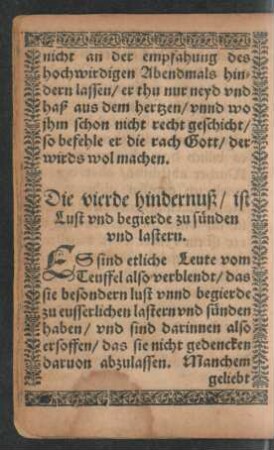 nicht an der empfahung des
hochwirdigen Abendmals hin-
dern lassen/ er thu nur neyd vnd
haß aus dem hertzen/ vnnd wo
jhm schon nicht recht geschicht/
so befehle er die rach Gott/ der
wirds wol machen.
Die vierde hindernuß/ ist
Lust vnd begierde zu sünden
vnd lastern.
ES sind etliche Leute vom
Teuffel also verblendt/ das
sie besondern lust vnnd begierde
zu eusserlichen lastern vnd sünden
haben/ vnd sind darinnen also
ersoffen/ das sie nicht gedencken
daruon abzulassen. Manchem
geliebt